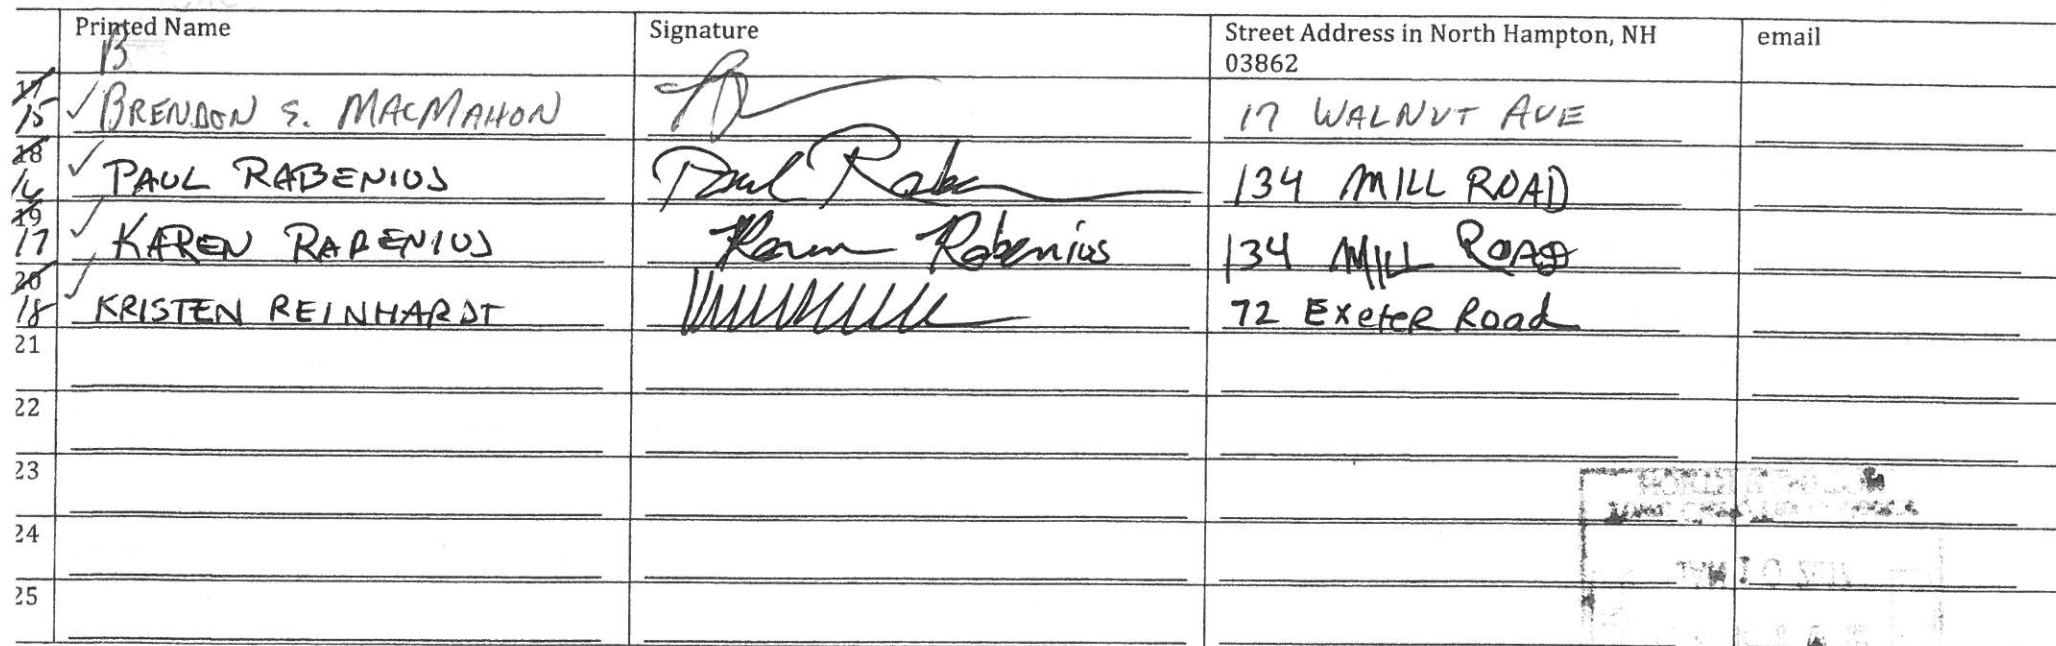 Printed Name Signature Street Address in North Hampton, NH email
03862
B
17
15 ✓ BRENDON S. MACMAHON 17 WALNUT AVE
18
16 ✓ PAUL RABENIUS Paul Raben 134 MILL ROAD
19
17 ✓ KAREN RABENIUS Karen Rabenius 134 MILL ROAD
20
18 ✓ KRISTEN REINHARDT 72 Exeter Road
21
22
23
24
25